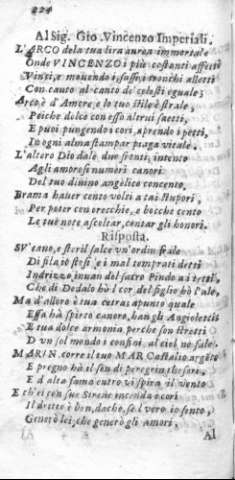 224
Al Sig. Gio. Vincenzo Imperiali.
L'ARCO dela tua lira aurea immortale
Onde VINCENZO i più costanti affetti
Vinci, e mouendo i sassi, i tronchi alletti
Con canto al canto de' celesti eguale;
Arco è d'Amore, e lo tuo stile è strale,
Poiche dolce con esso altrui saetti,
E puoi pungendo i cori, aprendo i petti,
In ogni alma stampar piaga vitale.
L'altero Dio dale due fronti, intento
Agli amorosi numeri canori
Del tuo diuino angelico concento,
Brama hauer cento volti a tai stupori,
Per poter con orecchie, e bocche cento
Le tue note ascoltar, cantar gli honori.
Risposta.
SV' cano, e steril salce vn'ordin frale
Di fila, io stesi, e i mal temprati detti
Indrizzo inuan del sacro Pindo a i
Che di Dedalo hò l cor del figlio hò l'ale,
Ma d'alloro è tua cetra: apunto quale
Essa hà spirto canoro, han gli Angioletti
E tua dolce armonia perche son stretti
D'vn sol mondo i confini, al ciel sen sale.
MARIN, corre il tuo MAR Castalio argeto
E pregno hà il sen di peregrin thesori,
E d'alta fama entro vi spira il vento
E ch'ei con sue Sirene incenda i cori
Il dritto è ben, dache, se'l vero io sento,
Generò lei, che generò gli amori,
Al